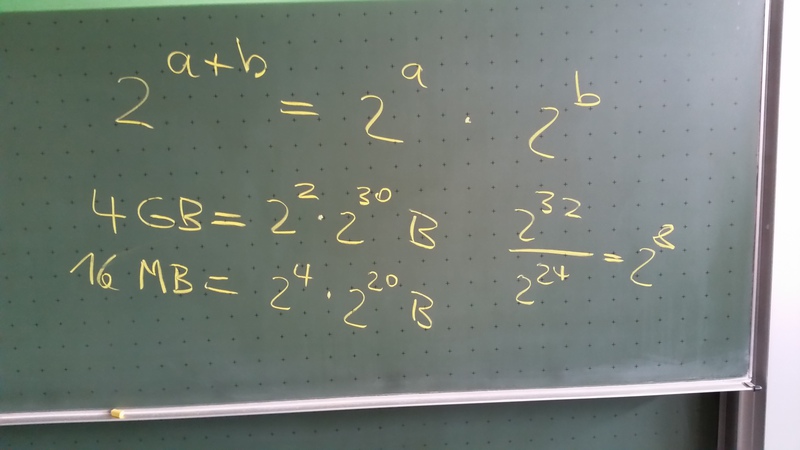 2^{a+b} = 2^a · 2^b
4 GB = 2^2 · 2^{30} B
16 MB = 2^4 · 2^{20} B
\frac{2^{32}}{2^{24}} = 2^8